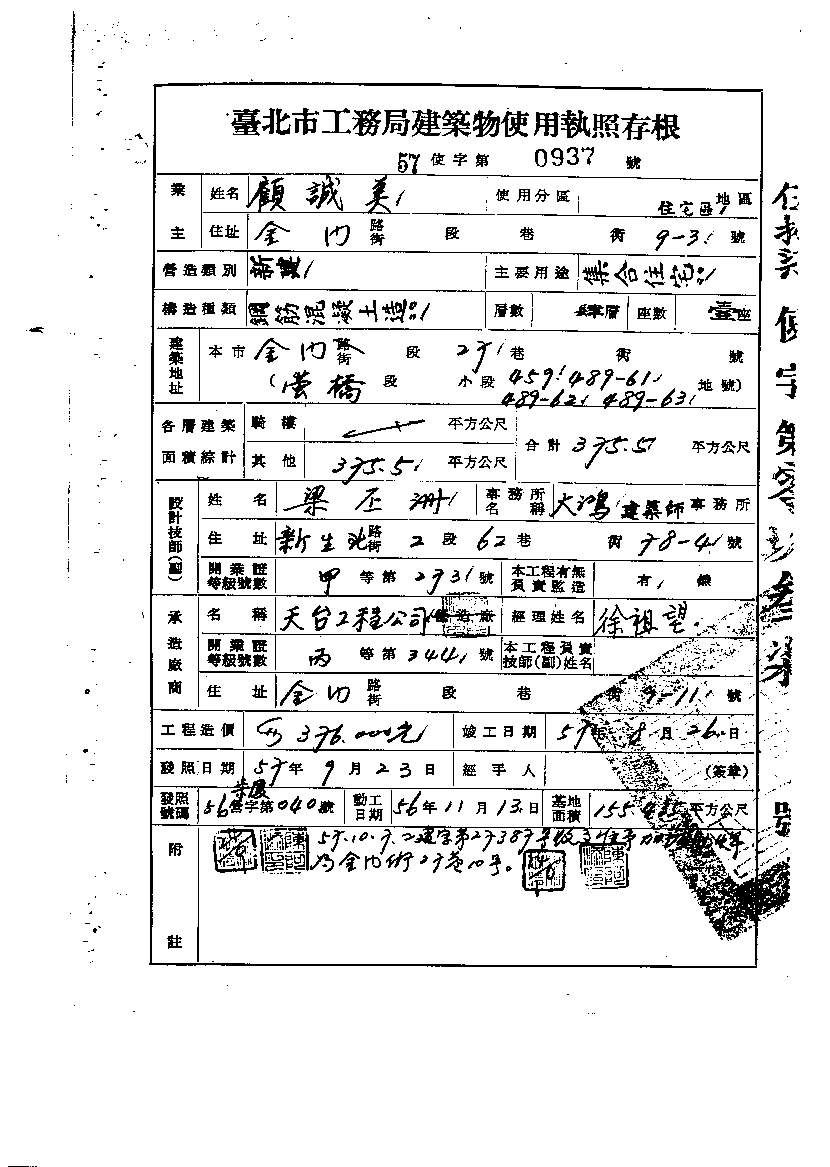 臺北市工務局建築物使用執照存根
57 使字第 0937 號
業主 姓名 顧誠美 使用分區 住宅區 地區
住址 金門 路街 段 巷 衖 9-3 號
營造類別 新建 主要用途 集合住宅
構造種類 鋼筋混凝土造 層數 層 座數 座
建築地址 本市 金門 路街 段 27 巷 衖 號
(螢橋 段 小段 459 489-61 地號)
489-62 489-63
各層建築面積綜計 騎樓 平方公尺 合計 375.5 平方公尺
其他 375.5 平方公尺
設計技師(副) 姓名 梁丕洲 事務所名稱 大鴻建築師事務所
住址 新生北 路街 2 段 62 巷 衖 78-4 號
開業證等級號數 甲 等第 2731 號 本工程有無負責監造 有 無
承造廠商 名稱 天台工程公司 營造廠 經理姓名 徐祖望
開業證等級號數 丙 等第 344 號 本工程負責技師(副)姓名
住址 金門 路街 段 巷 衖 9-11 號
工程造價 376.000元 竣工日期 57年 8月 26日
發照日期 57年 9月 23日 經手人 (簽章)
發照號碼 56 營字第 040 號 動工日期 56年 11月 13日 基地面積 155.4 平方公尺
附註 57.10.7. 字第27387號
為金門街27巷10号。
使字第 號